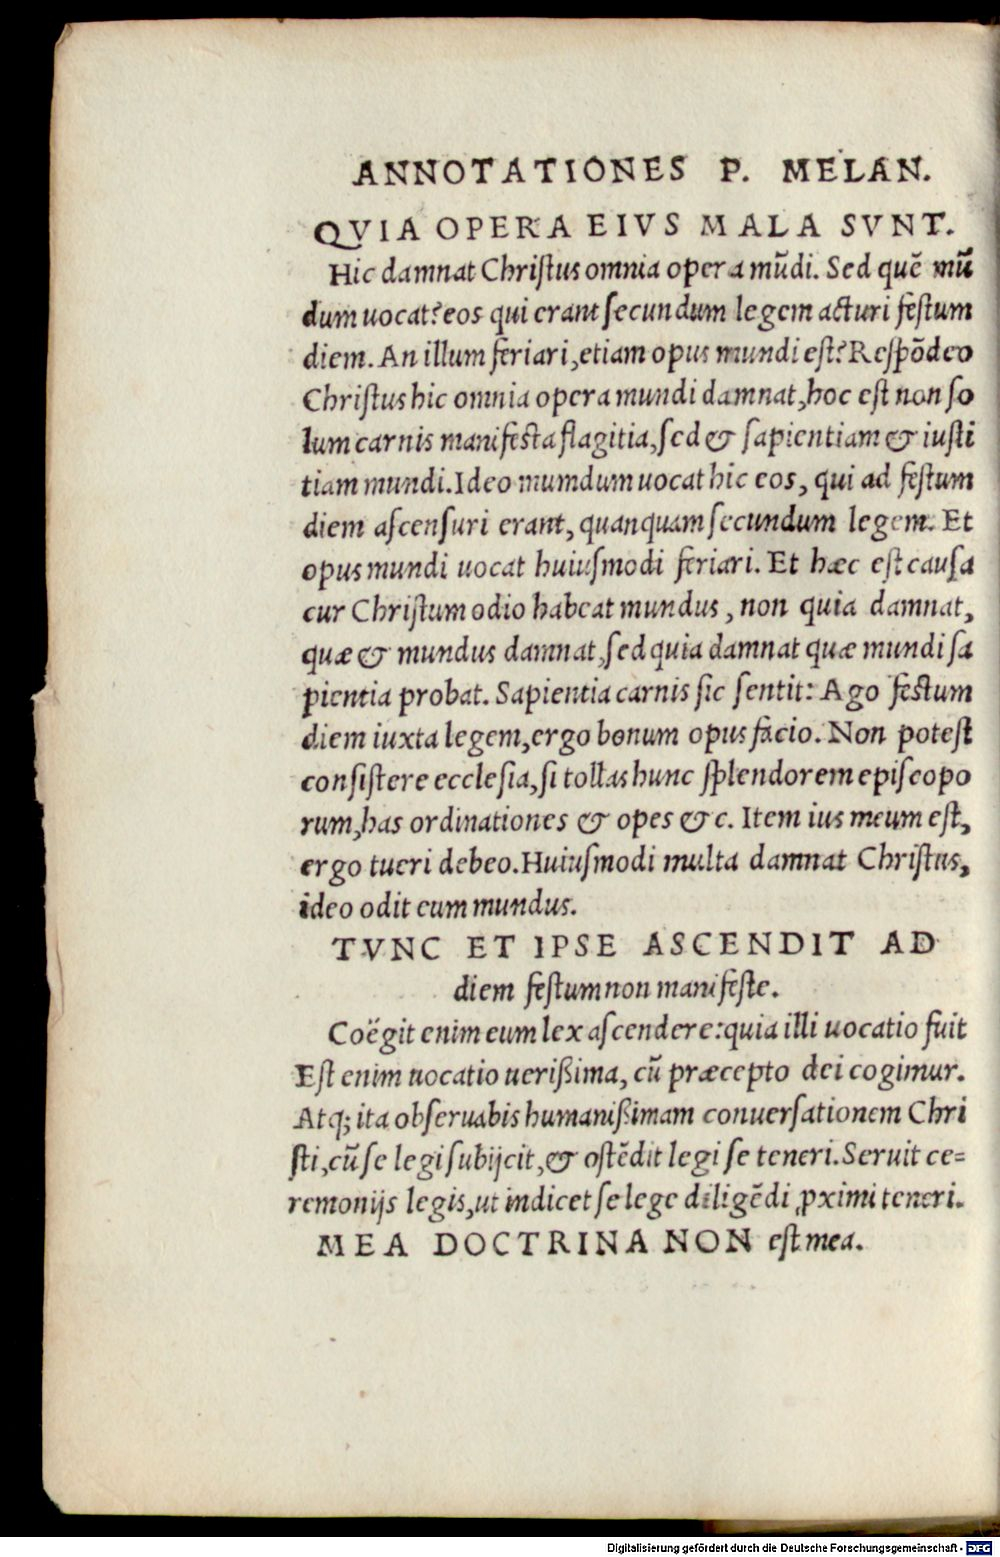 ANNOTATIONES P. MELAN.
QVIA OPERA EIVS MALA SVNT.
Hic damnat Chriſtus omnia opera mūdi. Sed quē mū
dum uocat? eos qui erant ſecundum legem acturi feſtum
diem. An illum feriari, etiam opus mundi eſt? Reſpōdeo
Chriſtus hic omnia opera mundi damnat, hoc eſt non ſo
lum carnis manifeſta flagitia, ſed & ſapientiam & iuſti
tiam mundi. Ideo mumdum uocat hic eos, qui ad feſtum
diem aſcenſuri erant, quanquam ſecundum legem. Et
opus mundi uocat huiuſmodi feriari. Et hæc eſt cauſa
cur Chriſtum odio habeat mundus, non quia damnat,
quæ & mundus damnat, ſed quia damnat quæ mundi ſa
pientia probat. Sapientia carnis ſic ſentit: Ago feſtum
diem iuxta legem, ergo bonum opus facio. Non poteſt
conſiſtere eccleſia, ſi tollas hunc ſplendorem epiſcopo
rum, has ordinationes & opes &c. Item ius meum eſt,
ergo tueri debeo. Huiuſmodi multa damnat Chriſtus,
ideo odit eum mundus.
TVNC ET IPSE ASCENDIT AD
diem feſtum non manifeſte.
Coëgit enim eum lex aſcendere: quia illi uocatio fuit
Eſt enim uocatio ueriſsima, cū præcepto dei cogimur.
Atq; ita obſeruabis humaniſsimam conuerſationem Chri
ſti, cū ſe legi ſubijcit, & oſtēdit legi ſe teneri. Seruit ce=
remonijs legis, ut indicet ſe lege diligēdi ꝓximi teneri.
MEA DOCTRINA NON eſt mea.
Digitalisierung gefördert durch die Deutsche Forschungsgemeinschaft - DFG